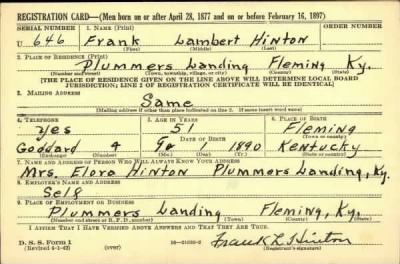 REGISTRATION CARD—(Men born on or after April 28, 1877 and on or before February 16, 1897)
SERIAL NUMBER 1. NAME (Print) ORDER NUMBER
U 646 Frank Lambert Hinton
(First) (Middle) (Last)
2. PLACE OF RESIDENCE (Print)
Plummers Landing Fleming Ky.
(Number and street) (Town, township, village, or city) (County) (State)
[THE PLACE OF RESIDENCE GIVEN ON THE LINE ABOVE WILL DETERMINE LOCAL BOARD
JURISDICTION; LINE 2 OF REGISTRATION CERTIFICATE WILL BE IDENTICAL]
3. MAILING ADDRESS
Same
[Mailing address if other than place indicated on line 2. If same insert word same]
4. TELEPHONE 5. AGE IN YEARS 6. PLACE OF BIRTH
yes 51 Fleming
DATE OF BIRTH (Town or county)
Goddard 4 1 1890 Kentucky
(Exchange) (Number) (Mo.) (Day) (Yr.) (State or country)
7. NAME AND ADDRESS OF PERSON WHO WILL ALWAYS KNOW YOUR ADDRESS
Mrs. Elora Hinton Plummers Landing, Ky.
8. EMPLOYER'S NAME AND ADDRESS
Self
9. PLACE OF EMPLOYMENT OR BUSINESS
Plummers Landing Fleming, Ky.
(Number and street or R. F. D. number) (Town) (County) (State)
I AFFIRM THAT I HAVE VERIFIED ABOVE ANSWERS AND THAT THEY ARE TRUE.
D. S. S. Form 1
(Revised 4-1-42) (over) Frank L. Hinton
(Registrant's signature)